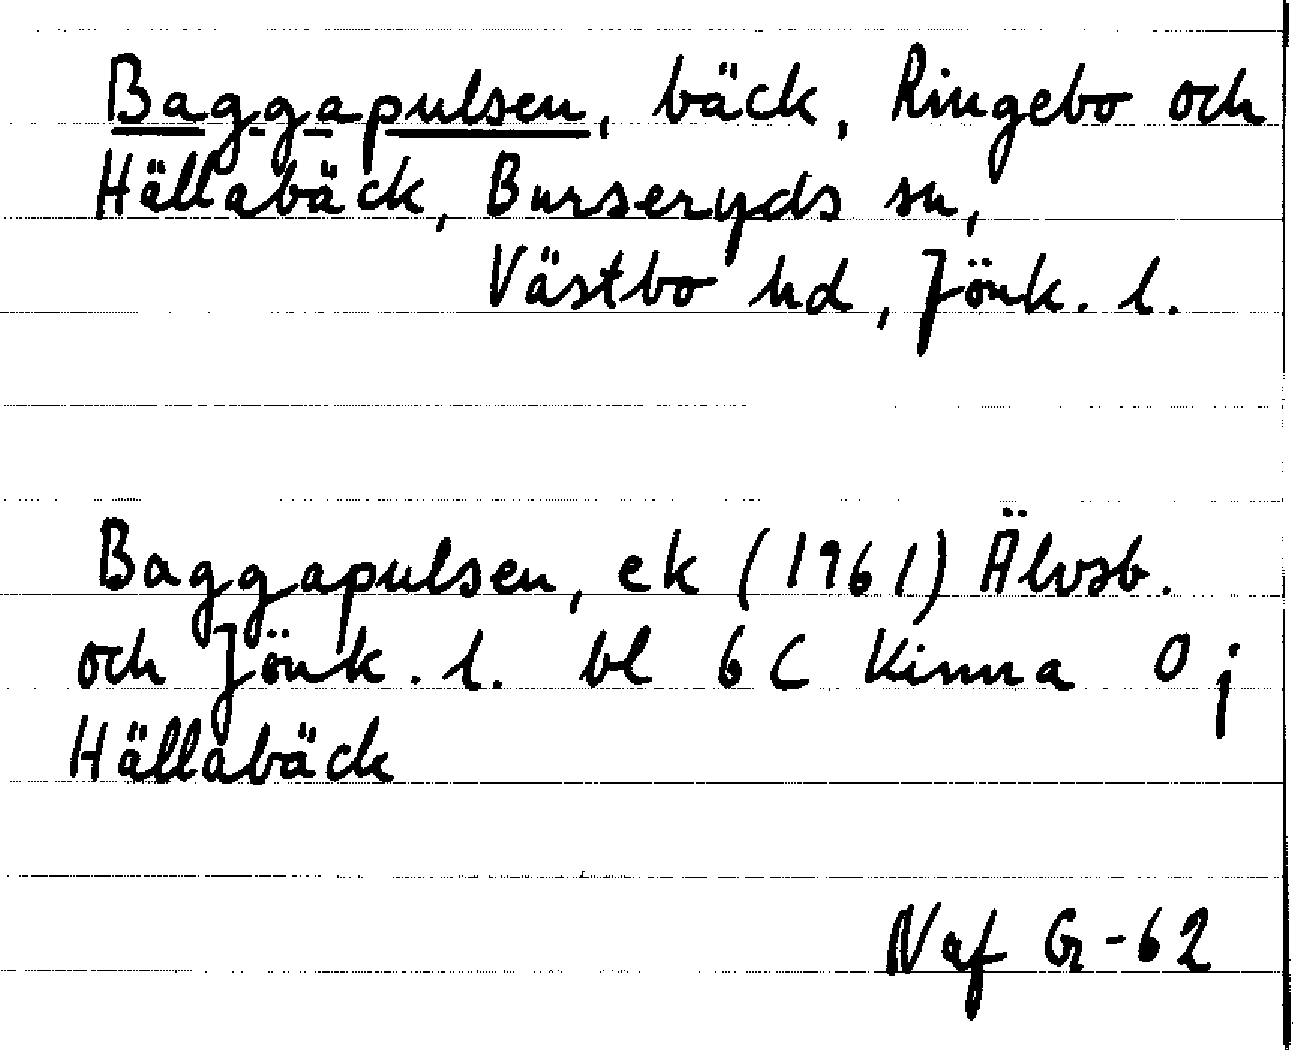 Baggapulsen, bäck, Ringebo och
Hällabäck, Burseryds sn,
Västbo hd, Jönk. l.
Baggapulsen, ek (1961) Älvsb.
och Jönk. l. bl 6 C Kinna 0 j
Hällabäck
Naf Gr-62